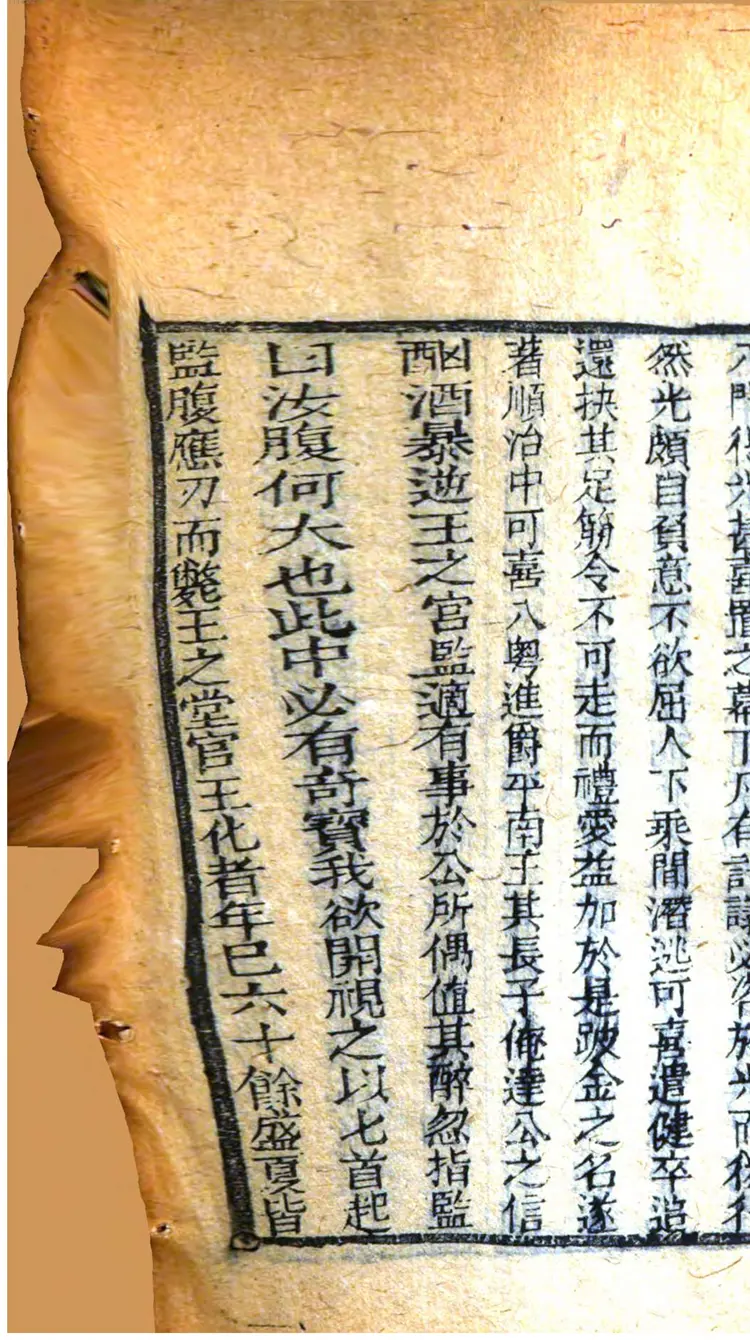 得光甚喜置之幕下凡有計議必咨於光而後行
然光頗自負意不欲屈人下乘間潛逃可喜遣健卒追
還抉其足筋令不可走而禮愛益加於是跛金之名遂
著順治中可喜入粤進爵平南王其長子俺達公之信
酗酒暴逆王之宮監適有事於公所偶值其醉忽指監
曰汝腹何大也此中必有奇寶我欲開視之以匕首起
監腹應刃而斃王之堂官王化者年已六十餘盛夏皆